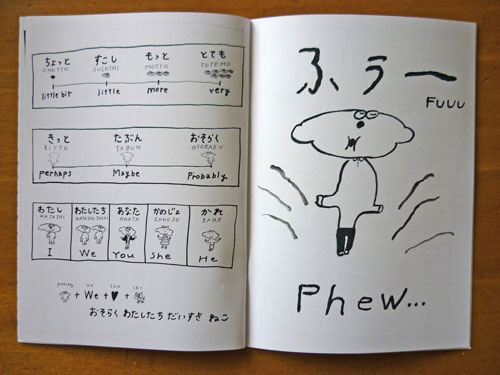 ちょっと すこし もっと とても
CHOTTO SUKOSHI MOTTO TOTEMO
little bit little more very
きっと たぶん おそらく
KITTO TABUN OSORAKU
perhaps Maybe Probably
わたし わたしたち あなた かのじょ かれ
WATASHI WATASHITACHI ANATA KANOJO KARE
I We You She He
probably we love
+ We + ♥ +
おそらく わたしたち だいすき ねこ
ふぅー
FUUU
Phew...